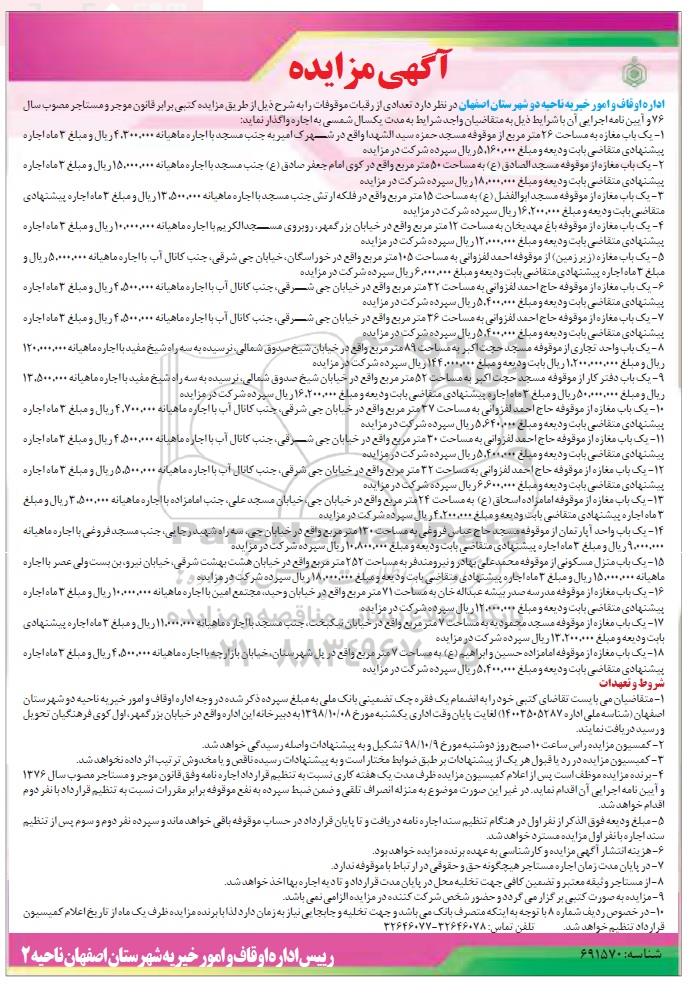 آگهی مزایده
اداره اوقاف و امور خیریه ناحیه دو شهرستان اصفهان در نظر دارد تعدادی از رقبات موقوفات را به شرح ذیل از طریق مزایده کتبی برابر قانون موجر و مستاجر مصوب سال
۷۶ و آیین نامه اجرایی آن با شرایط ذیل به متقاضیان واجد شرایط به مدت یکسال شمسی به اجاره واگذار نماید:
۱- یک باب مغازه به مساحت ۲۶ متر مربع از موقوفه مسجد حمزه سید الشهدا واقع در شهرک امیر به جنب مسجد با اجاره ماهیانه ۴،۳۰۰،۰۰۰ ریال و مبلغ ۳ ماه اجاره
پیشنهادی متقاضی بابت ودیعه و مبلغ ۵،۱۶۰،۰۰۰ ریال سپرده شرکت در مزایده
۲- یک باب مغازه از موقوفه مسجد الصادق (ع) به مساحت ۵۰ متر مربع واقع در کوی امام جعفر صادق (ع) جنب مسجد با اجاره ماهیانه ۱۵،۰۰۰،۰۰۰ ریال و مبلغ ۳ ماه اجاره
پیشنهادی متقاضی بابت ودیعه و مبلغ ۱۸،۰۰۰،۰۰۰ ریال سپرده شرکت در مزایده
۳- یک باب مغازه از موقوفه مسجد ابوالفضل (ع) به مساحت ۱۵ متر مربع واقع در فلکه ارتش جنب مسجد با اجاره ماهیانه ۱۳،۵۰۰،۰۰۰ ریال و مبلغ ۳ ماه اجاره پیشنهادی
متقاضی بابت ودیعه و مبلغ ۱۶،۲۰۰،۰۰۰ ریال سپرده شرکت در مزایده
۴- یک باب مغازه از موقوفه باغ مهدبخان به مساحت ۱۲ متر مربع واقع در خیابان بزرگمهر، روبروی مسجد الکریم با اجاره ماهیانه ۱۰،۰۰۰،۰۰۰ ریال و مبلغ ۳ ماه اجاره
پیشنهادی متقاضی بابت ودیعه و مبلغ ۱۲،۰۰۰،۰۰۰ ریال سپرده شرکت در مزایده
۵- یک باب مغازه (زیر زمین) از موقوفه احمد لفزوانی به مساحت ۱۰۵ متر مربع واقع در خوراسگان، خیابان جی شرقی، جنب کانال آب با اجاره ماهیانه ۵،۰۰۰،۰۰۰ ریال و
مبلغ ۳ ماه اجاره پیشنهادی متقاضی بابت ودیعه و مبلغ ۶،۰۰۰،۰۰۰ ریال سپرده شرکت در مزایده
۶- یک باب مغازه از موقوفه حاج احمد لفزوانی به مساحت ۳۲ متر مربع واقع در خیابان جی شرقی، جنب کانال آب با اجاره ماهیانه ۴،۵۰۰،۰۰۰ ریال و مبلغ ۳ ماه اجاره
پیشنهادی متقاضی بابت ودیعه و مبلغ ۵،۴۰۰،۰۰۰ ریال سپرده شرکت در مزایده
۷- یک باب مغازه از موقوفه حاج احمد لفزوانی به مساحت ۳۶ متر مربع واقع در خیابان جی شرقی، جنب کانال آب با اجاره ماهیانه ۴،۵۰۰،۰۰۰ ریال و مبلغ ۳ ماه اجاره
پیشنهادی متقاضی بابت ودیعه و مبلغ ۵،۴۰۰،۰۰۰ ریال سپرده شرکت در مزایده
۸- یک باب واحد تجاری از موقوفه مسجد حجت اکبر به مساحت ۸۹ متر مربع واقع در خیابان شیخ صدوق شمالی، نرسیده به سه راه شیخ مفید با اجاره ماهیانه ۱۲۰،۰۰۰،۰۰۰
ریال و مبلغ ۱،۲۰۰،۰۰۰،۰۰۰ ریال بابت ودیعه و مبلغ ۱۴۴،۰۰۰،۰۰۰ ریال سپرده شرکت در مزایده
۹- یک باب دفتر کار از موقوفه مسجد حجت اکبر به مساحت ۵۲ متر مربع واقع در خیابان شیخ صدوق شمالی، نرسیده به سه راه شیخ مفید با اجاره ماهیانه ۱۳،۵۰۰،۰۰۰
ریال و مبلغ ۵۰،۰۰۰،۰۰۰ ریال و مبلغ ۳ ماه اجاره پیشنهادی متقاضی بابت ودیعه و مبلغ ۱۶،۲۰۰،۰۰۰ ریال سپرده شرکت در مزایده
۱۰- یک باب مغازه از موقوفه حاج احمد لفزوانی به مساحت ۳۷ متر مربع واقع در خیابان جی شرقی، جنب کانال آب با اجاره ماهیانه ۴،۷۰۰،۰۰۰ ریال و مبلغ ۳ ماه اجاره
پیشنهادی متقاضی بابت ودیعه و مبلغ ۵،۶۴۰،۰۰۰ ریال سپرده شرکت در مزایده
۱۱- یک باب مغازه از موقوفه حاج احمد لفزوانی به مساحت ۳۰ متر مربع واقع در خیابان جی شرقی، جنب کانال آب با اجاره ماهیانه ۴،۵۰۰،۰۰۰ ریال و مبلغ ۳ ماه اجاره
پیشنهادی متقاضی بابت ودیعه و مبلغ ۵،۴۰۰،۰۰۰ ریال سپرده شرکت در مزایده
۱۲- یک باب مغازه از موقوفه حاج احمد لفزوانی به مساحت ۳۲ متر مربع واقع در خیابان جی شرقی، جنب کانال آب با اجاره ماهیانه ۵،۵۰۰،۰۰۰ ریال و مبلغ ۳ ماه اجاره
پیشنهادی متقاضی بابت ودیعه و مبلغ ۶،۶۰۰،۰۰۰ ریال سپرده شرکت در مزایده
۱۳- یک باب مغازه از موقوفه امامزاده اسحاق (ع) به مساحت ۲۴ متر مربع واقع در خیابان جی، خیابان مسجد علی، جنب امامزاده با اجاره ماهیانه ۳،۵۰۰،۰۰۰ ریال و مبلغ
۳ ماه اجاره پیشنهادی متقاضی بابت ودیعه و مبلغ ۴،۲۰۰،۰۰۰ ریال سپرده شرکت در مزایده
۱۴- یک باب واحد آپارتمان از موقوفه مسجد حاج عباس فروغی به مساحت ۱۳۰ متر مربع واقع در خیابان جی، سه راه شهید رجایی، جنب مسجد فروغی با اجاره ماهیانه
۹،۰۰۰،۰۰۰ ریال و مبلغ ۳ ماه اجاره پیشنهادی متقاضی بابت ودیعه و مبلغ ۱۰،۸۰۰،۰۰۰ ریال سپرده شرکت در مزایده
۱۵- یک باب منزل مسکونی از موقوفه محمدعلی بهادر و نیرومندفر به مساحت ۲۵۲ متر مربع واقع در خیابان هشت بهشت شرقی، خیابان نیرو، بن بست ولی عصر با اجاره
ماهیانه ۱۵،۰۰۰،۰۰۰ ریال و مبلغ ۳ ماه اجاره پیشنهادی متقاضی بابت ودیعه و مبلغ ۱۸،۰۰۰،۰۰۰ ریال سپرده شرکت در مزایده
۱۶- یک باب مغازه از موقوفه مدرسه صدر بیشه عبداله خان به مساحت ۷۱ متر مربع واقع در خیابان وحید، مجتمع امین با اجاره ماهیانه ۱۰،۰۰۰،۰۰۰ ریال و مبلغ ۳ ماه اجاره
پیشنهادی متقاضی بابت ودیعه و مبلغ ۱۲،۰۰۰،۰۰۰ ریال سپرده شرکت در مزایده
۱۷- یک باب مغازه از موقوفه مسجد محمودیه به مساحت ۷ متر مربع واقع در خیابان نیکبخت، جنب مسجد با اجاره ماهیانه ۱۱،۰۰۰،۰۰۰ ریال و مبلغ ۳ ماه اجاره پیشنهادی
بابت ودیعه و مبلغ ۱۳،۲۰۰،۰۰۰ ریال سپرده شرکت در مزایده
۱۸- یک باب مغازه از موقوفه امامزاده حسین و ابراهیم (ع) به مساحت ۷ متر مربع واقع در پل شهرستان، خیابان بازارچه با اجاره ماهیانه ۴،۵۰۰،۰۰۰ ریال و مبلغ ۳ ماه اجاره
پیشنهادی متقاضی بابت ودیعه و مبلغ ۵،۴۰۰،۰۰۰ ریال سپرده شرکت در مزایده
شروط و تعهدات
۱- متقاضیان می بایست تقاضای کتبی خود را به انضمام یک فقره چک تضمینی بانک ملی به مبلغ سپرده ذکر شده در وجه اداره اوقاف و امور خیریه ناحیه دو شهرستان
اصفهان (شناسه ملی اداره ۱۴۰۰۳۵۰۵۲۸۷) لغایت پایان وقت اداری یکشنبه مورخ ۱۳۹۸/۱۰/۰۸ به دبیرخانه این اداره واقع در خیابان بزرگمهر، اول کوی فرهنگیان تحویل
و رسید دریافت نمایند.
۲- کمسیون مزایده راس ساعت ۱۰ صبح روز دوشنبه مورخ ۹۸/۱۰/۹ تشکیل و به پیشنهادات واصله رسیدگی خواهد شد.
۳- کمیسیون مزایده در رد یا قبول هر یک از پیشنهادات بر طبق ضوابط مختار است و به پیشنهادات رسیده ناقص و یا مخدوش ترتیب اثر داده نخواهد شد.
۴- برنده مزایده موظف است پس از اعلام کمیسیون مزایده ظرف مدت یک هفته کاری نسبت به تنظیم قرارداد اجاره نامه وفق قانون موجر و مستاجر مصوب سال ۱۳۷۶
و آیین نامه اجرایی آن اقدام نماید. در غیر این صورت موضوع به منزله انصراف تلقی و ضمن ضبط سپرده به نفع موقوفه برابر مقررات نسبت به تنظیم قرارداد با نفر دوم
اقدام خواهد شد.
۵- مبلغ ودیعه فوق الذکر از نفر اول در هنگام تنظیم سند اجاره نامه دریافت و تا پایان قرارداد در حساب موقوفه باقی خواهد ماند و سپرده نفر دوم و سوم پس از تنظیم
سند اجاره با نفر اول مزایده مسترد خواهد شد.
۶- هزینه انتشار آگهی مزایده و کارشناسی به عهده برنده مزایده خواهد بود.
۷- در پایان مدت زمان اجاره مستاجر هیچگونه حق و حقوقی در ارتباط با موقوفه ندارد.
۸- از مستاجر وثیقه معتبر و تضمین کافی جهت تخلیه محل در پایان مدت قرارداد و تادیه اجاره بها اخذ خواهد شد.
۹- مزایده به صورت کتبی برگزار می گردد و حضور شخص شرکت کننده در مزایده الزامی نمی باشد.
۱۰- در خصوص ردیف شماره ۸ با توجه به اینکه متصرف بانک می باشد و جهت تخلیه و جابجایی نیاز به زمان دارد لذا با برنده مزایده ظرف یک ماه از تاریخ اعلام کمیسیون
قرارداد تنظیم خواهد شد. تلفن تماس: ۳۲۶۴۶۰۷۸-۳۲۶۴۶۰۷۷
شناسه: ۶۹۱۵۷۰
رییس اداره اوقاف و امور خیریه شهرستان اصفهان ناحیه ۲